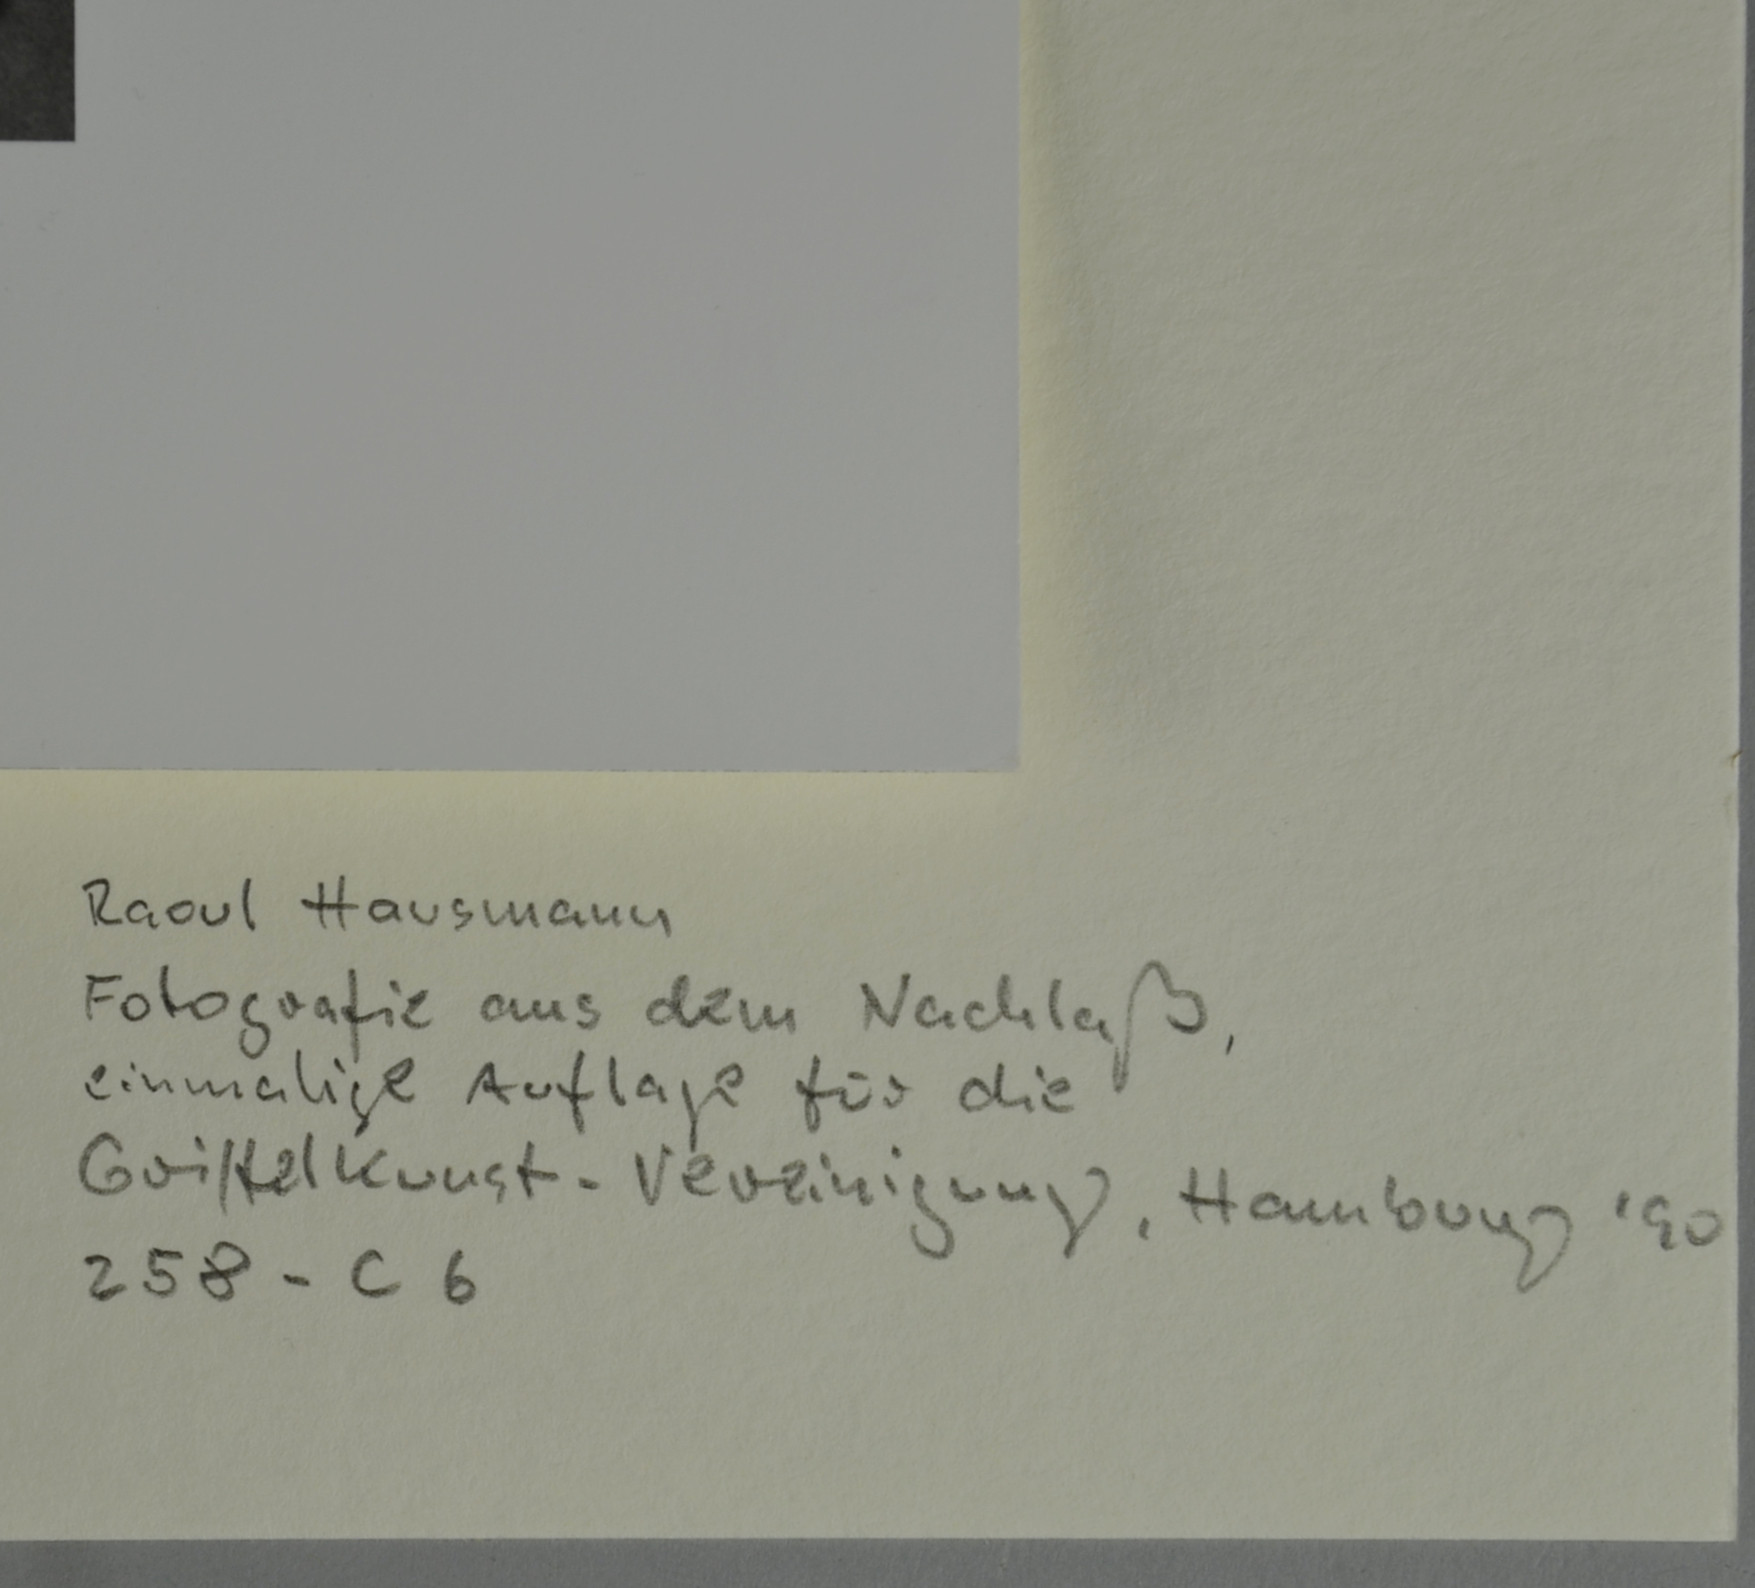 Raoul Hausmann
Fotografie aus dem Nachlaß,
einmalige Auflage für die
Griffelkunst-Vereinigung, Hamburg '90
258 - C 6